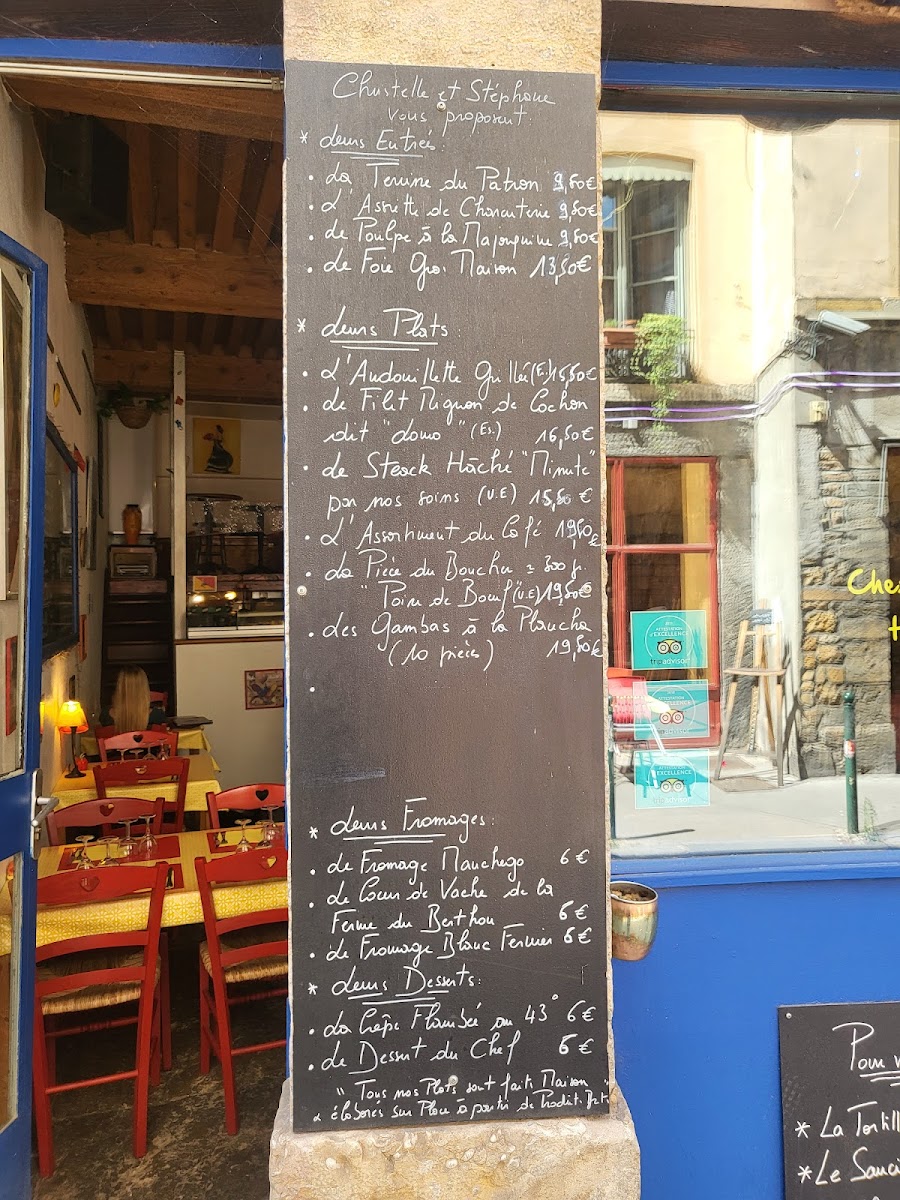 Christelle et Stéphane
vous proposent:
* Leurs Entrées:
. La Terrine du Patron 9,50€
. L'Assiette de Charcuterie 9,50€
. Le Poulpe à la Majorquine 9,50€
. Le Foie Gras Maison 13,50€
* Leurs Plats:
. L'Andouillette Grillée (F.) 15,50€
. Le Filet Mignon de Cochon
dit "Lomo" (Es.) 16,50€
. Le Steack Hâché "Minute"
par nos soins (U.E) 15,50 €
. L'Assortiment du Café 19,50€
. La Pièce du Boucher ± 300 gr.
"Poire de Boeuf" (U.E) 19,50€
. Les Gambas à la Plancha
(10 pièces) 19,50€
.
* Leurs Fromages:
. Le Fromage Manchego 6€
. Le Coeur de Vache de la
Ferme du Berthou 6€
. Le Fromage Blanc Fermier 6€
* Leurs Desserts:
. La Crêpe Flambée au 43° 6€
. Le Dessert du Chef 6€
"Tous nos Plats sont faits Maison
& élaborés sur Place à partir de Produits
ATTESTATION
d'EXCELLENCE
tripadvisor
ATTESTATION
d'EXCELLENCE
tripadvisor
ATTESTATION
d'EXCELLENCE
tripadvisor
Che
Pour
* La Tortill
* Le Sauci